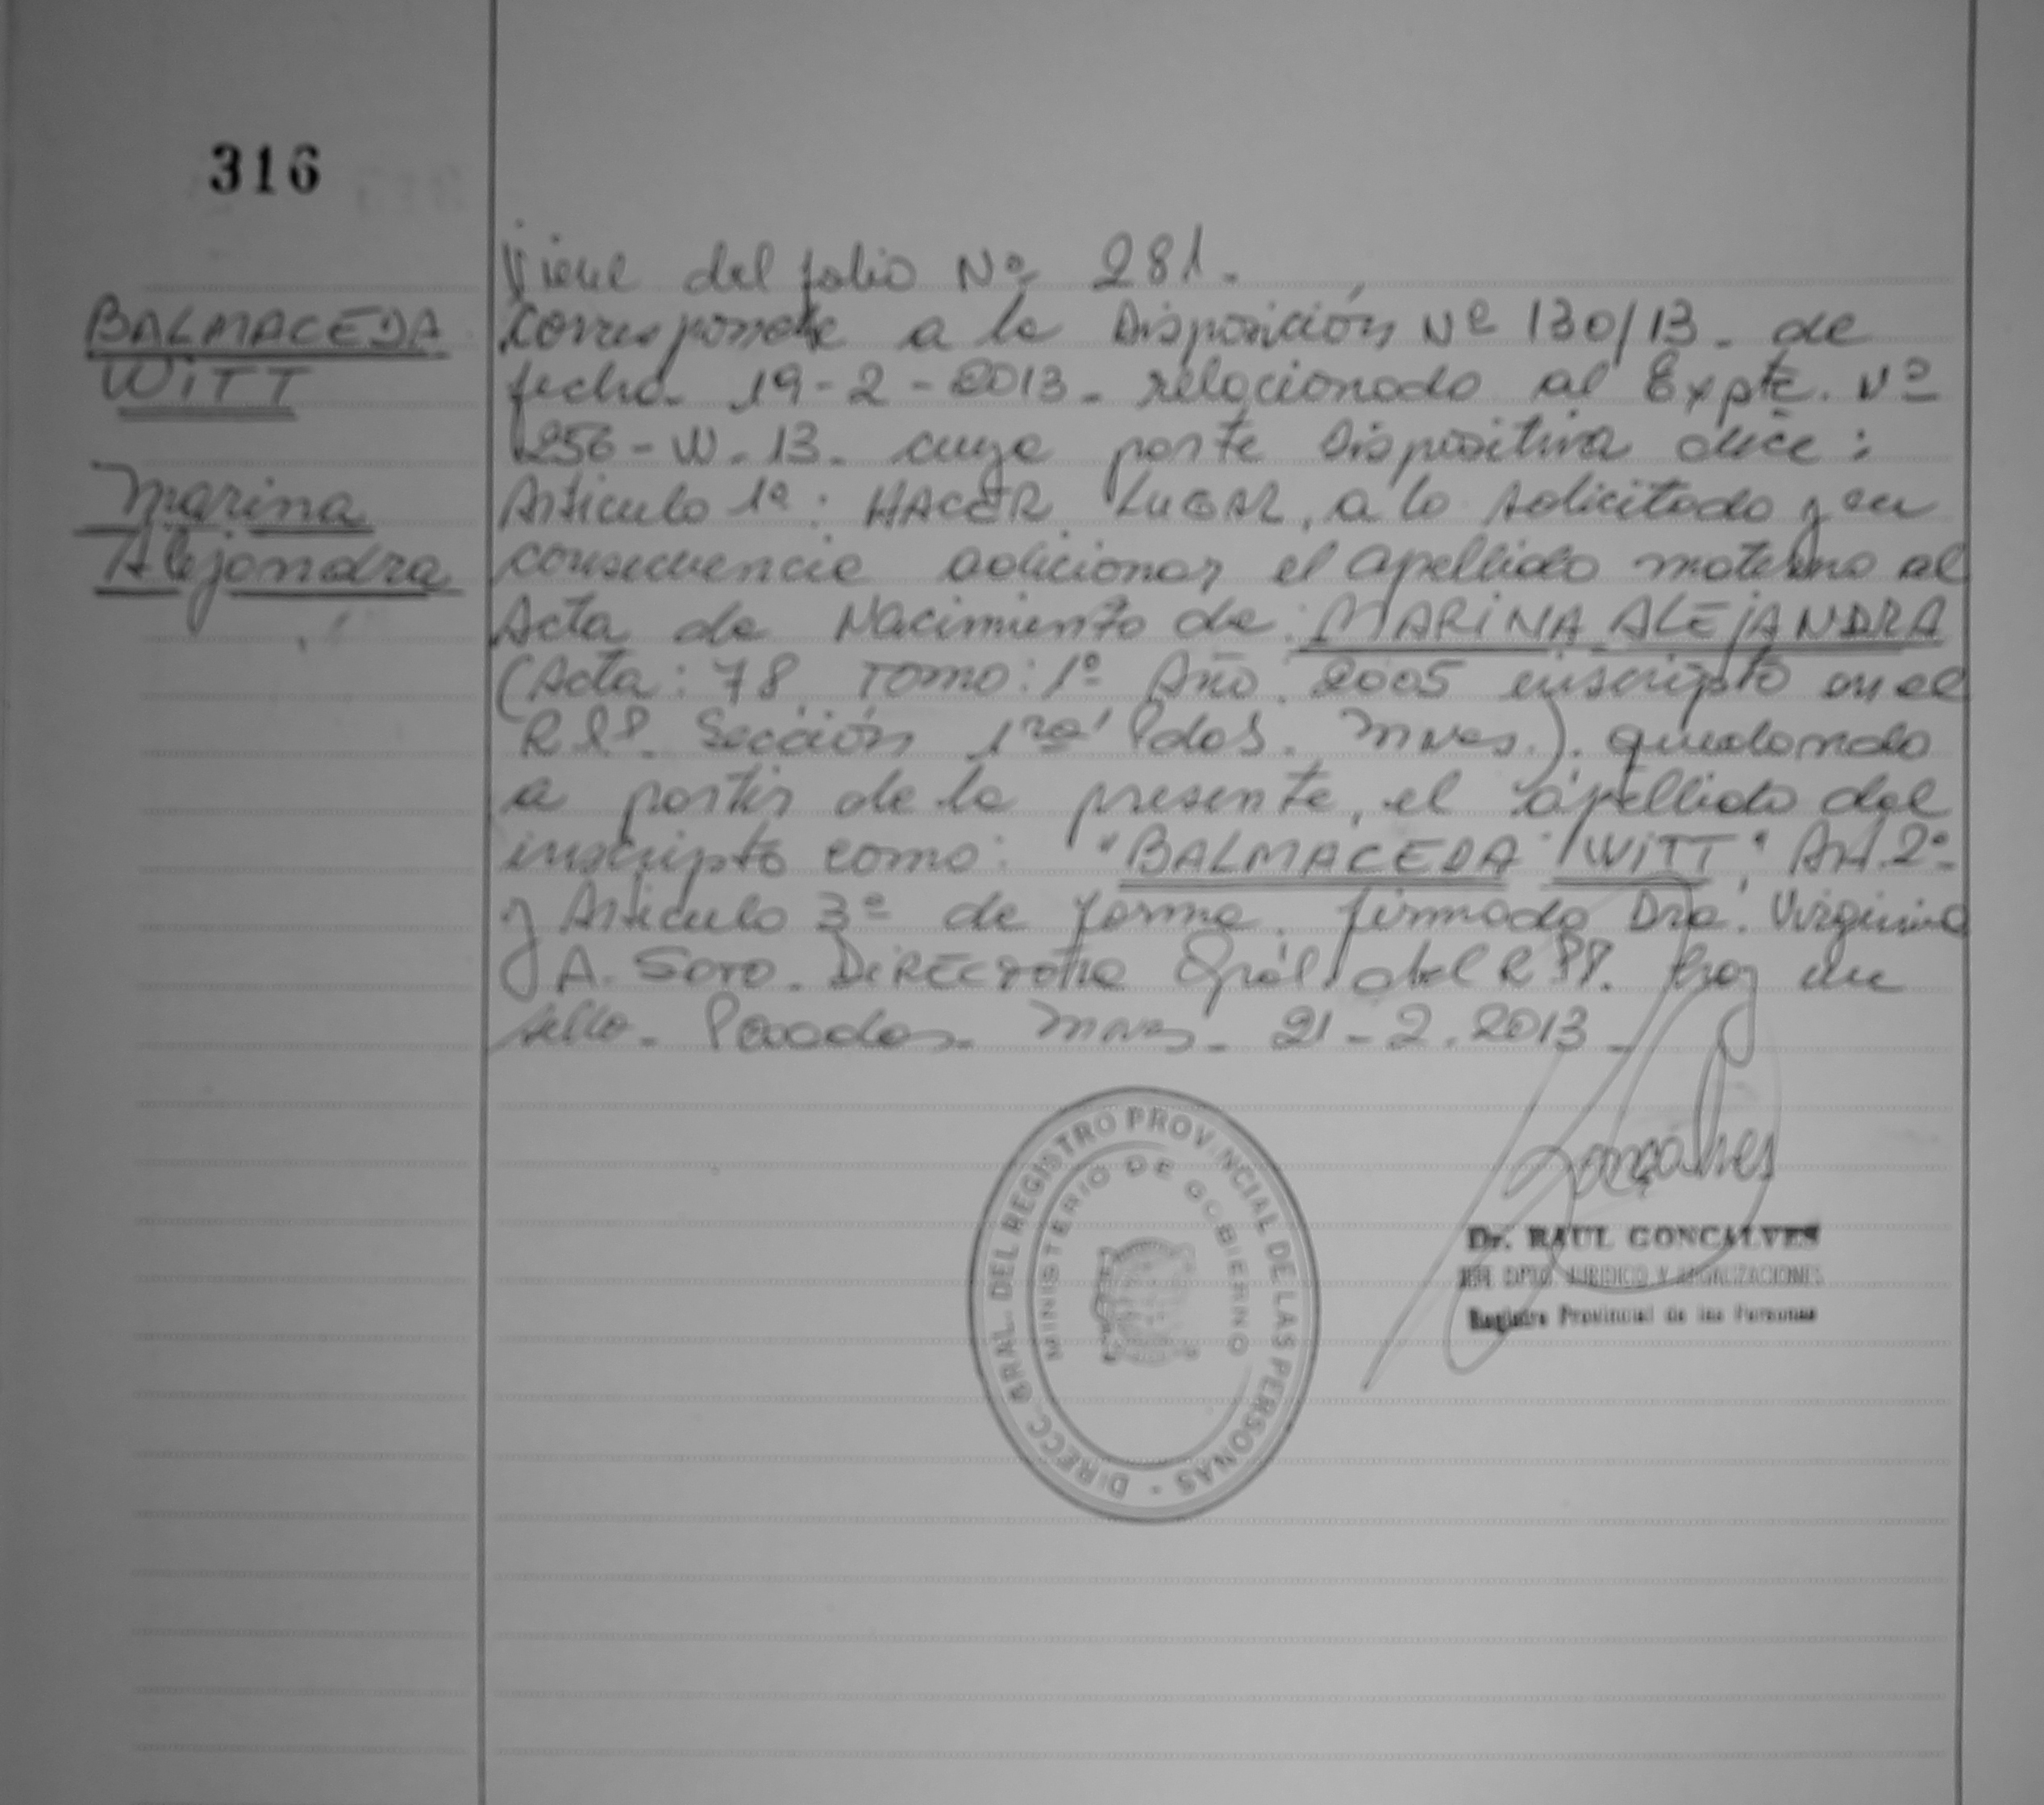 316
BALMACEDA
WITT
Marina
Alejandra
Viene del folio Nº 281.
Corresponde a la Disposición Nº 130/13. de
fecha 19-2-2013. relacionado al Expte. Nº
256-W-13. cuya parte Dispositiva dice:
Articulo 1º: HACER LUGAR, a lo solicitado y en
consecuencia adicionar el apellido materno al
Acta de Nacimiento de: MARINA ALEJANDRA
(Acta: 78. Tomo: 1º Año: 2005 inscripto en el
RPP. Sección 1ra Pdas. Mnes.). quedando
a partir de la presente, el apellido del
inscripto como: "BALMACEDA WITT" Art. 2º
y Articulo 3º de forma. firmado Dra. Virginia
A. Soto. DIRECTORA Gral del RPP. Hay un
sello. Posadas. Mnes. 21-2.2013.
DIRECC. GRAL. DEL REGISTRO PROVINCIAL DE LAS PERSONAS -
MINISTERIO DE GOBIERNO
Gonçalves
Dr. RAUL GONCALVES
JEFE DPTO. JURIDICO Y
Registro Provincial de las Personas